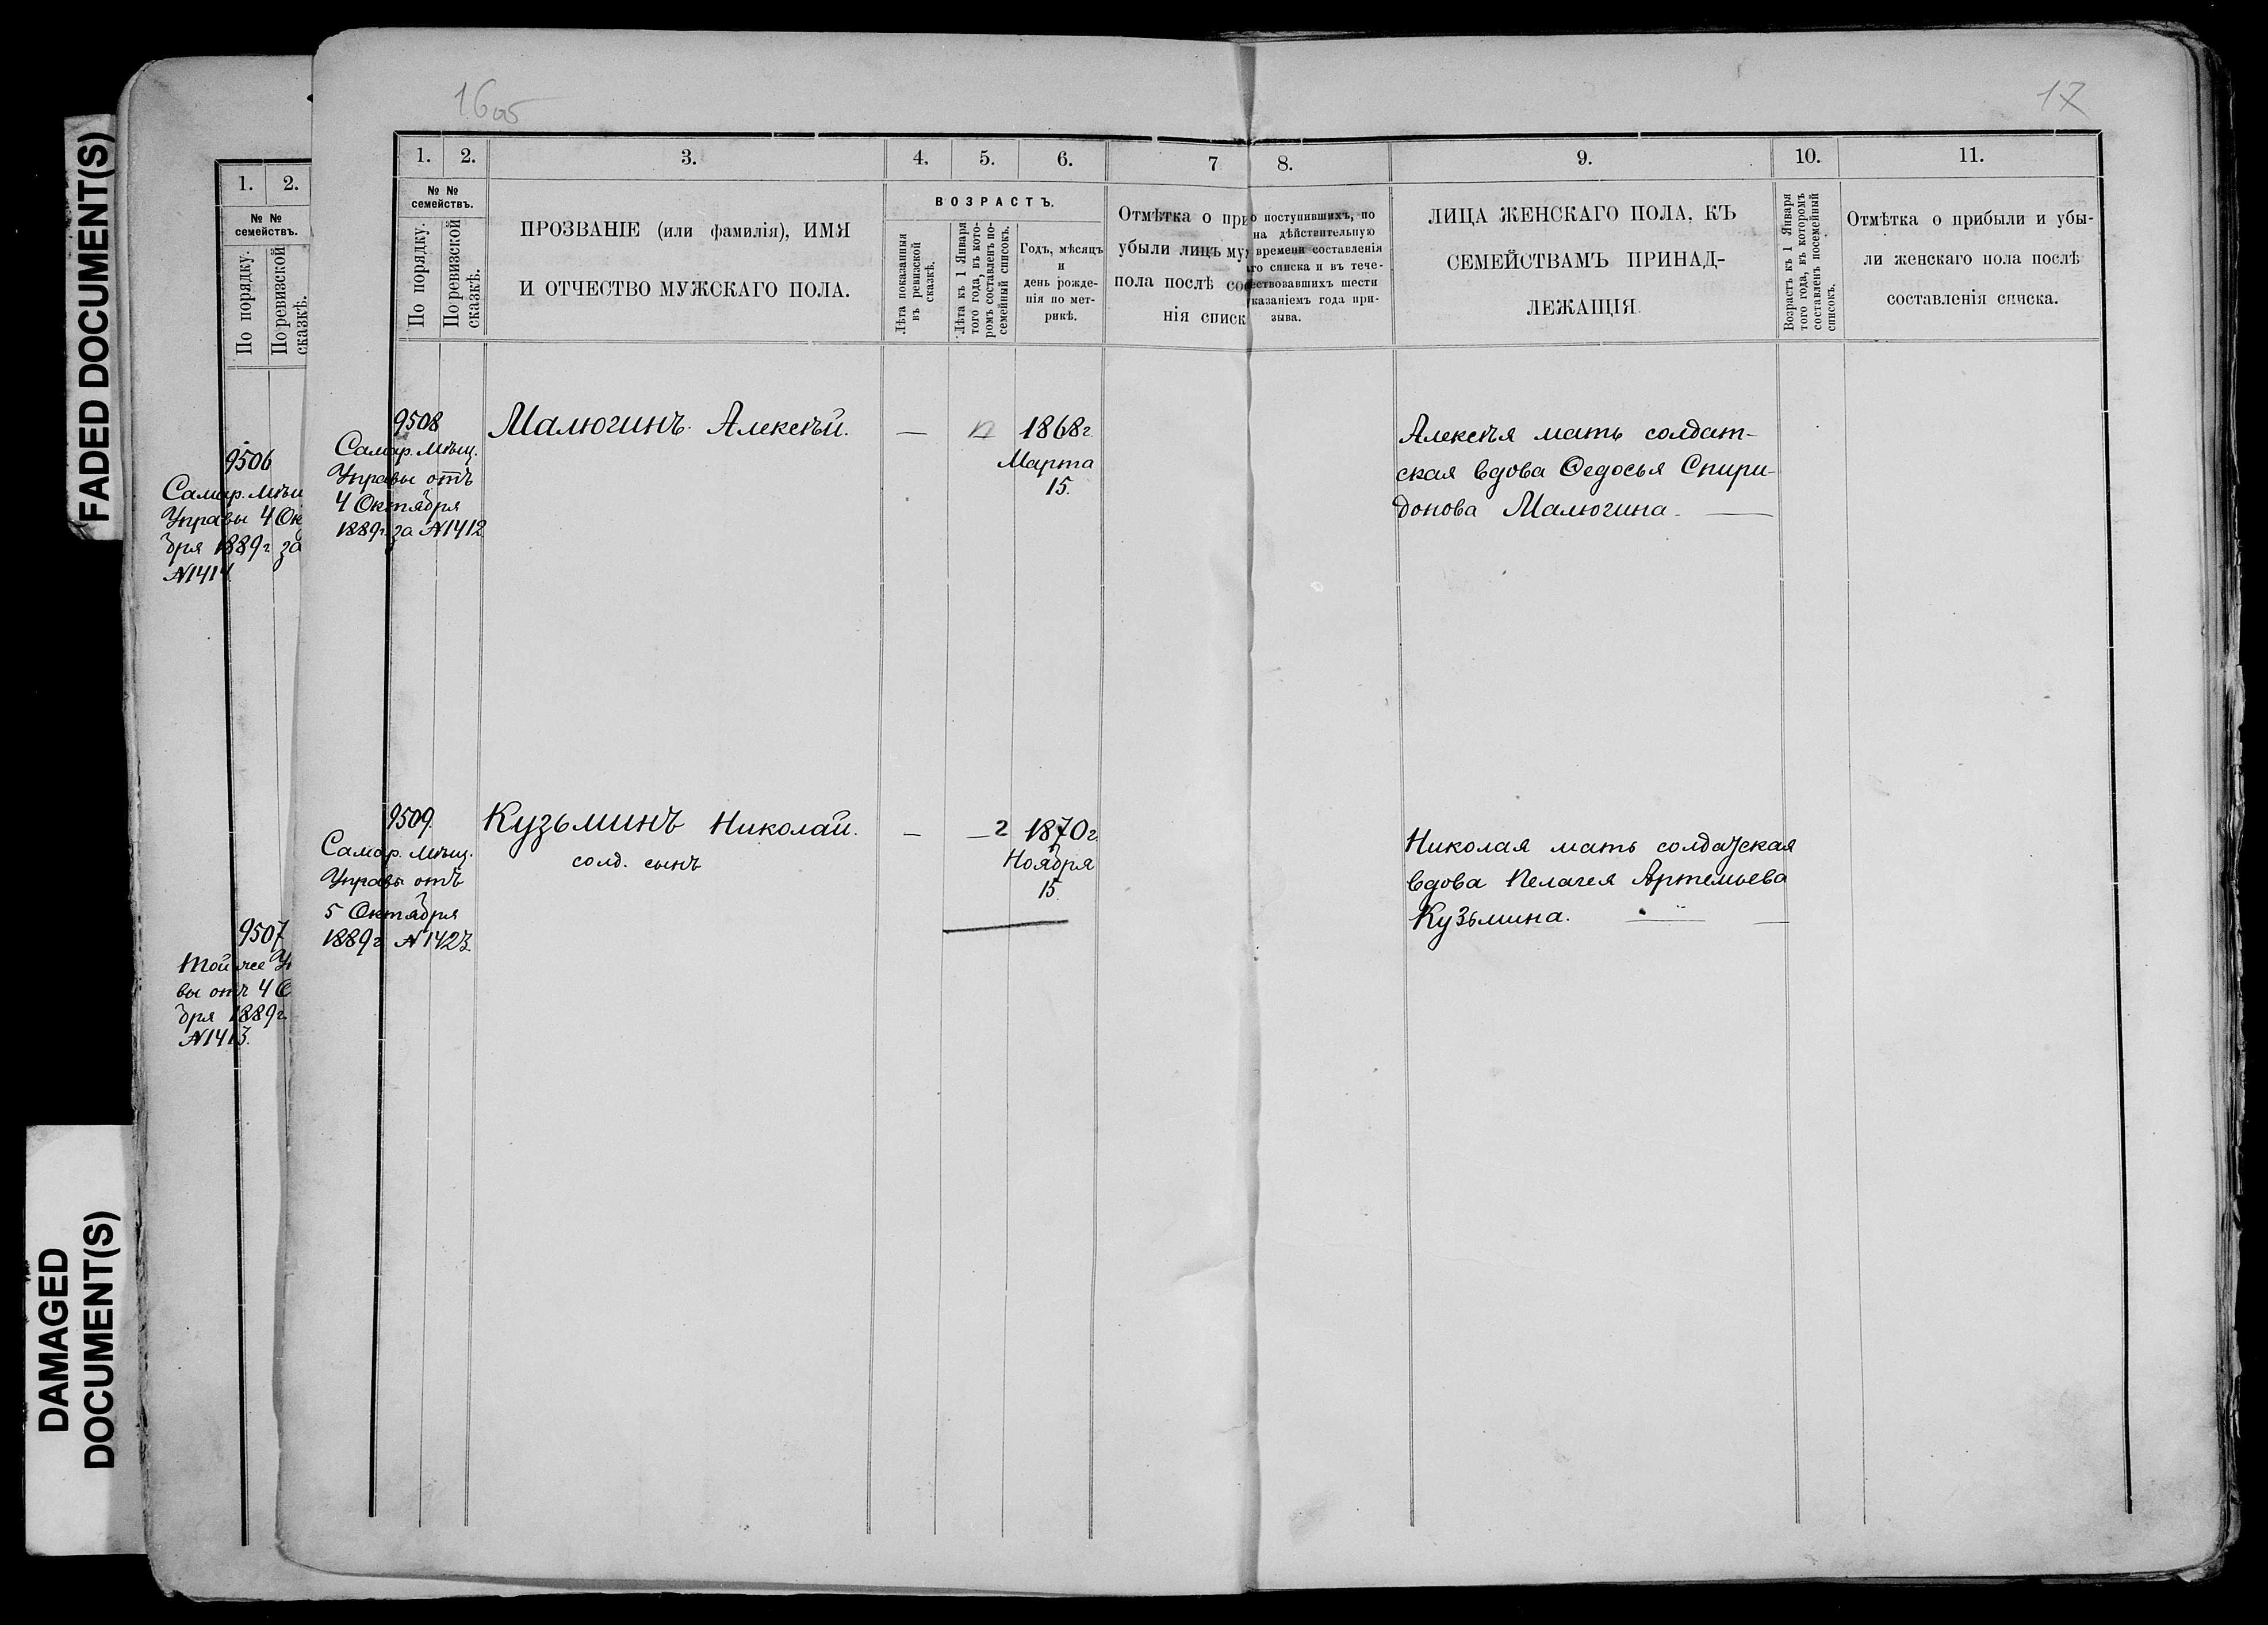 FADED DOCUMENT(S)
DAMAGED
DOCUMENT(S)
1. 2.
№ №
семействъ.
По порядку.
По ревизской
сказкѣ.
9506
Самар. Мѣщ
Управы 4 Ок
бря 1889г за
№1414
9507
Той же У
вы отъ 4 О
бря 1889г.
№1413.
17
1. 2. 3. 4. 5. 6. 7 8. 9. 10. 11.
№ №
семействъ.
По порядку.
По ревизской
сказкѣ.
ПРОЗВАНІЕ (или фамилія), ИМЯ
И ОТЧЕСТВО МУЖСКАГО ПОЛА.
ВОЗРАСТЪ.
Лѣта показанныя
въ ревизской
сказкѣ.
Лѣта къ 1 Января
того года, въ кото-
ромъ составленъ по-
семейный списокъ.
Годъ, мѣсяцъ
и
день рожде-
нія по мет-
рикѣ.
Отмѣтка о при
убыли лицъ му
пола послѣ со
нія списк
о поступившихъ, по
на дѣйствительную
времени составленія
го списка и въ тече-
ествовавшихъ шести
казаніемъ года при-
зыва.
ЛИЦА ЖЕНСКАГО ПОЛА, КЪ
СЕМЕЙСТВАМЪ ПРИНАД-
ЛЕЖАЩІЯ.
Возрастъ къ 1 Января
того года, въ которомъ
составленъ посемейный
списокъ.
Отмѣтка о прибыли и убы-
ли женскаго пола послѣ
составленія списка.
9508
Самар. Мѣщ.
Управы отъ
4 Октября
1889г. за №1412
Малюгинъ Алексѣй. —
1868г.
Марта
15.
Алексѣя мать солдат-
ская вдова Ѳедосья Спири-
донова Малюгина. —
9509.
Самар. Мѣщ.
Управы отъ
5 Октября
1889г. №1423.
Кузьминъ Николай. — — 2 1870г.
солд. сынъ
Ноября
15.
Николая мать солдатская
вдова Пелагея Артемьева
Кузьмина. —